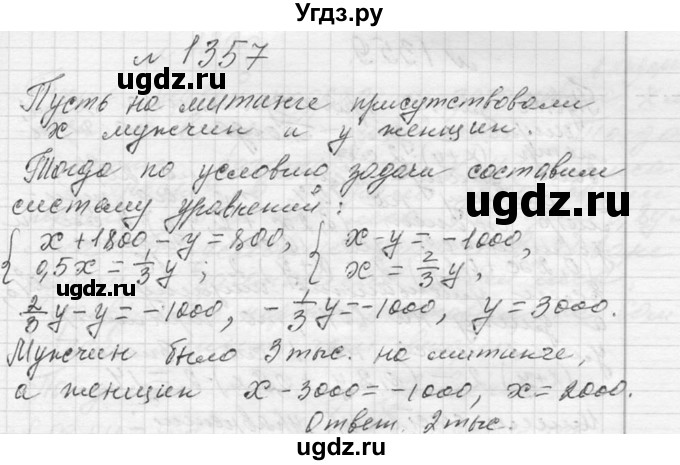 Угдз.ру
№ 1357
Пусть на митинге присутствовали
х мужчин и у женщин.
Тогда по условию задачи составим
систему уравнений:
{ x + 1800 - y = 800, { x - y = -1000,
{ 0,5x = 1/3 y ; { x = 2/3 y,
2/3 y - y = -1000, - 1/3 y = -1000, y = 3000.
Мужчин было 3 тыс. на митинге,
а женщин x - 3000 = -1000, x = 2000.
Ответ: 2 тыс.
ugdz.ru
ugdz.ru
ugdz.ru
ugdz.ru
ugdz.ru
ugdz.ru